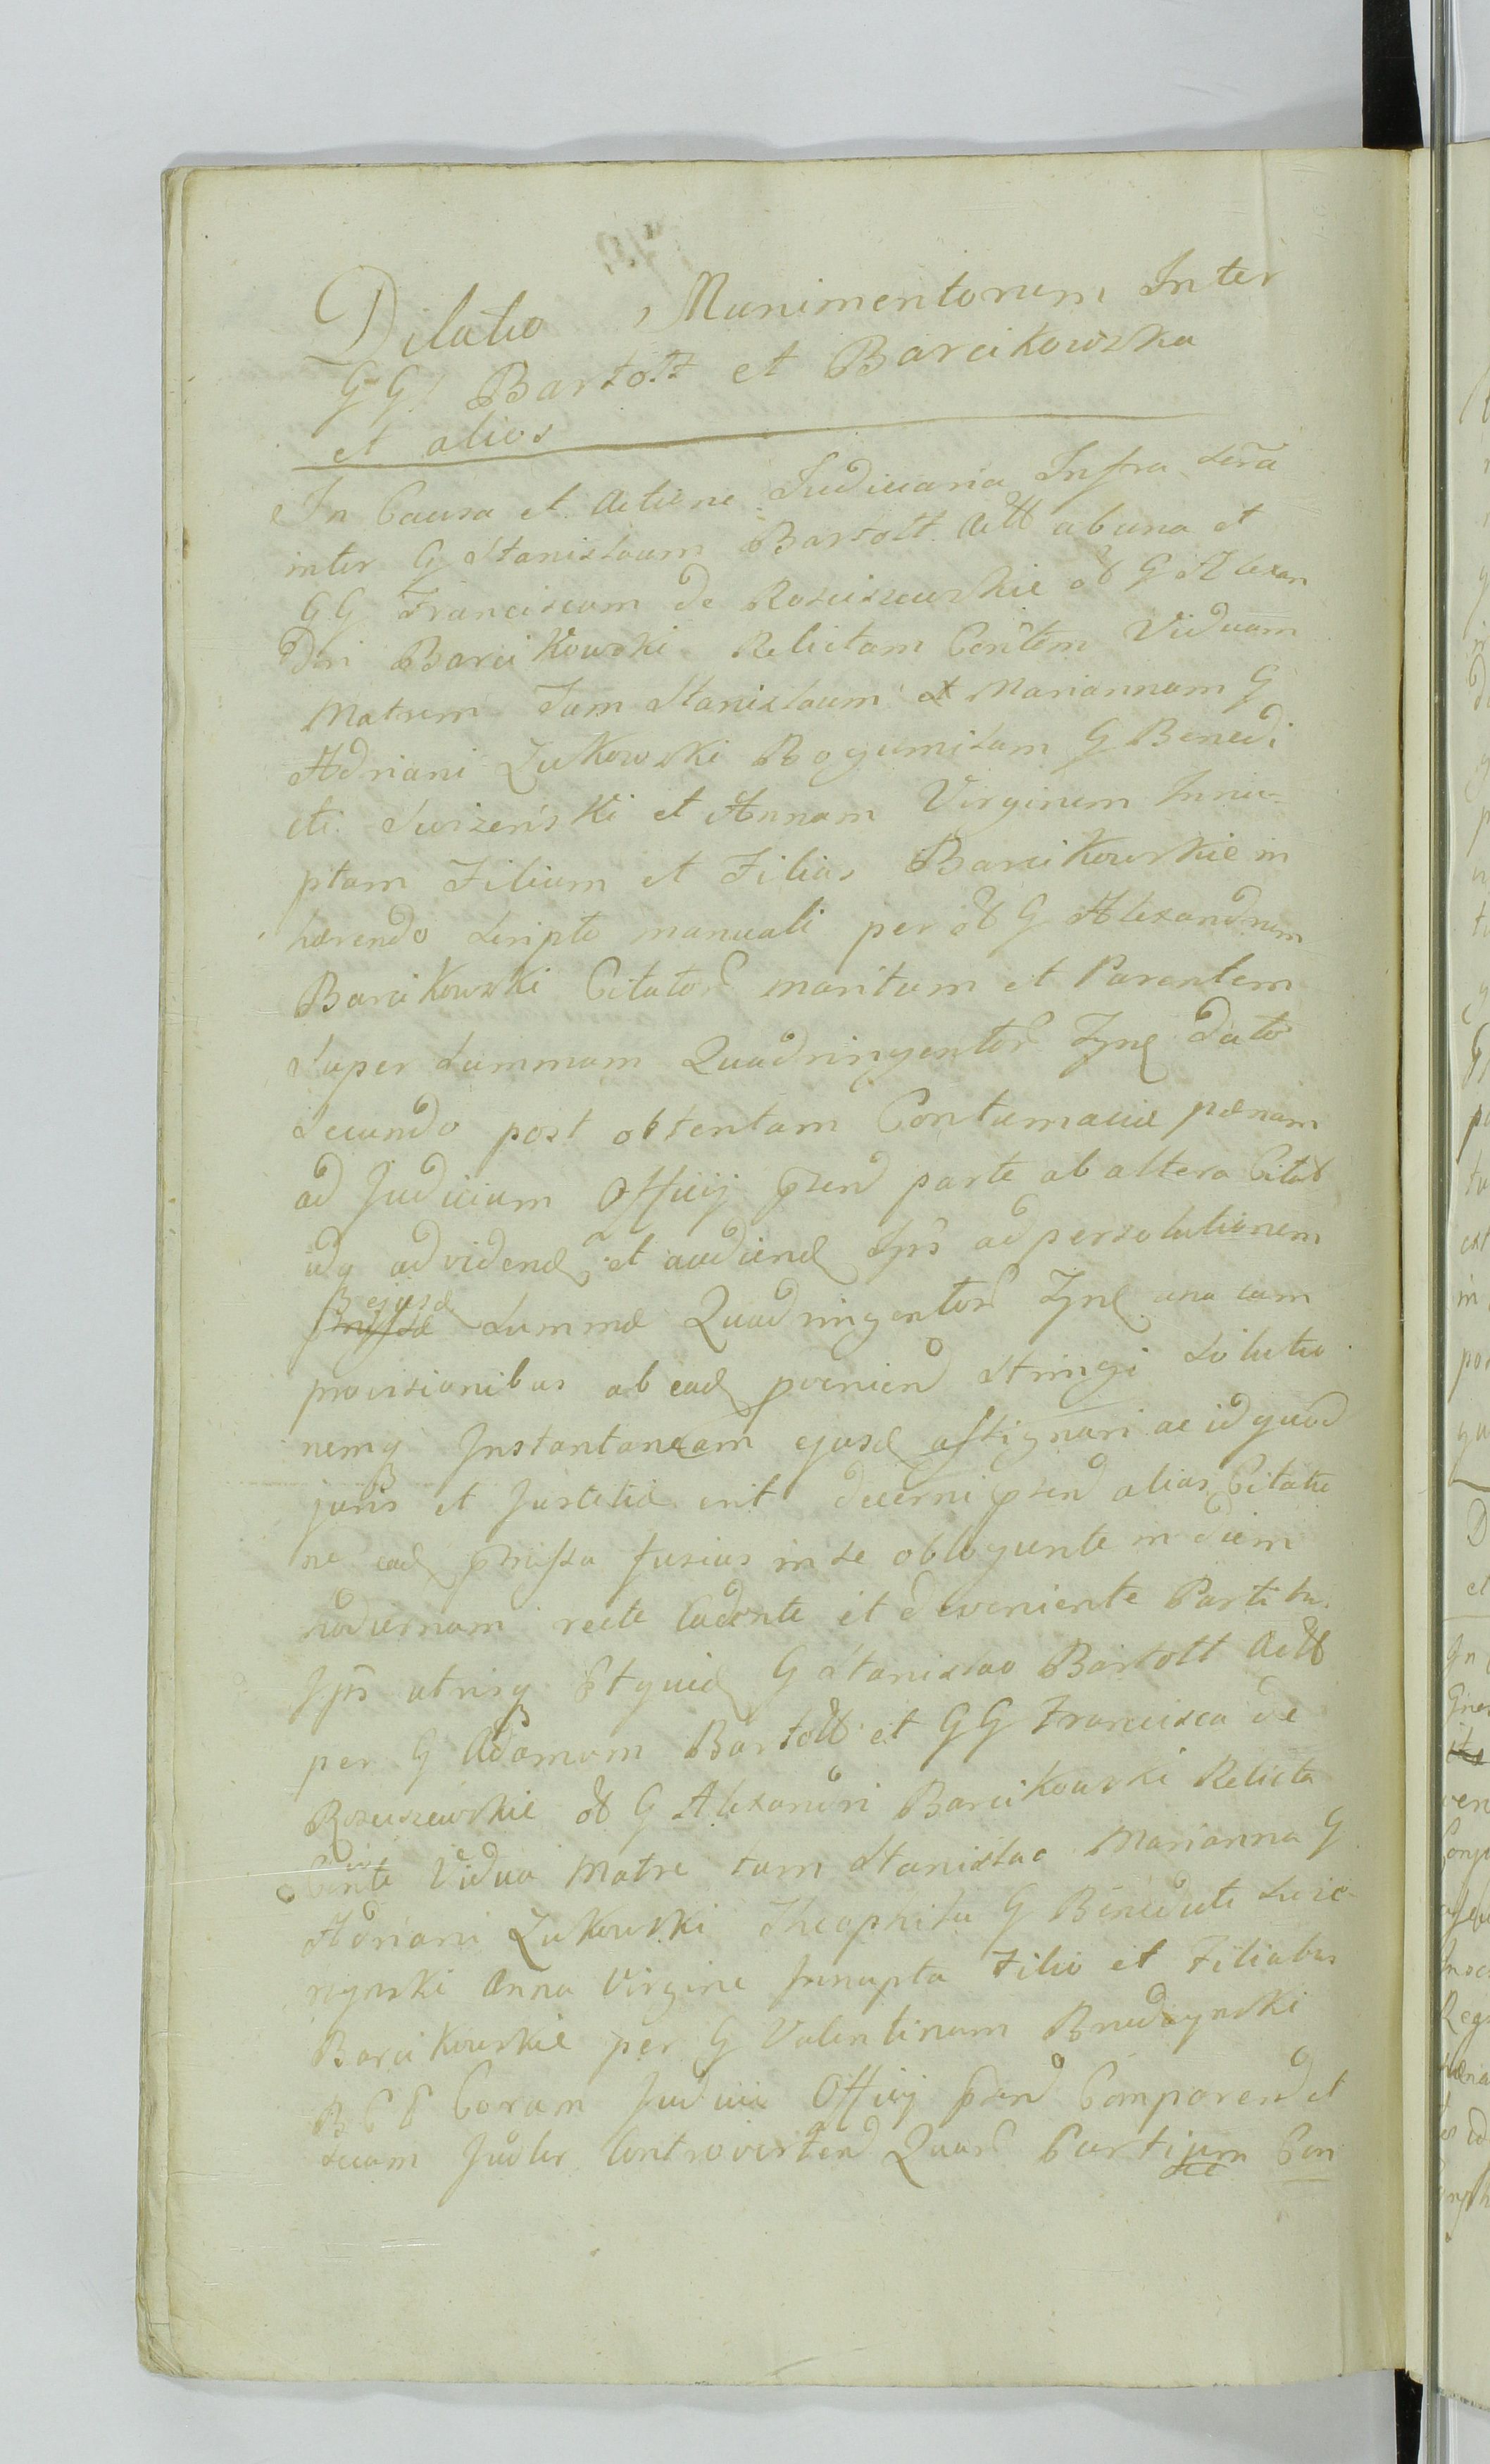 Dilatio Munimentorum Inter
GG. Bartołt et Barcikowska
et alios
In Causa et Actione Judiciaria Infra Scra
inter G Stanislaum Bartołt Actt ab una et
GG Franciscam de Rosciszewskie ol G Alexan
dri Barcikowski Relictam Contem Viduam
Matrem Tum Stanislaum et Mariannam G
Adriani Zukowski Bogumilam G Benedi
cti Swizeński et Annam Virginem Innu-
ptam Filium et Filias Barcikowskie in
hærendo Scripto manuali per ol G Alexandrum
Barcikowski Citator maritum et Parentem
Super Summam Quadringentor Fznl dato
Secundo post obtentam Contumaciæ pœnam
ad Judicium Officij psen parte ab altera Citat
idq ad videnđ et audienđ Ips ad persolutionem
ejusd Summæ Quadringentor Fznl una cum
provisionibus ab ead provenien Stringi Solutio
nemq Instantaneam ejusd assignari ac id quod
juris et Justitiæ erit decerni psen alias Citatio
ne ead pmissa fusius in se obloquente in diem
hodiernam recte Cadente et deveniente Partibus
Ips utrisq Et quid G Stanislao Bartołt Actt
per G Adamum Bartołt et GG Francisca de
Rosciszewskie ol G Alexandri Barcikowski Relicta
Conte Vidua Matre tum Stanislao Marianna G
Adriani Zukowski Theophila G Benedicti Swie-
rzynski Anna Virgine Innupta Filio et Filiabus
Barcikowskie per G Valentinum Brudzynski
Coram Judicio Officij psen Comparend et
secum Judler Controverten Quar Partium Con